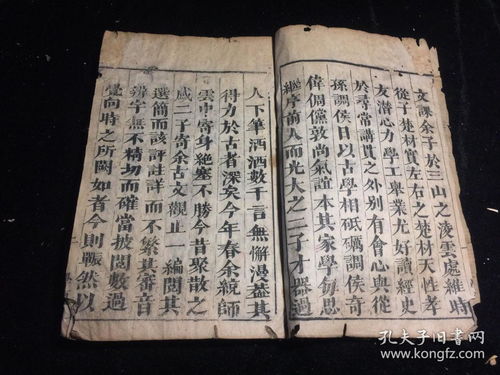 文課余子於三山之淩雲處維時
從子楚材實左右之楚材天性孝
友潛心力學工舉業尤好讀經史
於尋常講貫之外別有會心與從
孫調侯日以古學相砥礪調侯奇
偉倜儻敦尚氣誼本其家學每思
繼序前人而光大之二子才器過
人下筆洒洒數千言無懈漫蓋其
得力於古者深矣今年春余統師
雲中寄身絕塞不勝今昔聚散之
感二子寄余古文觀止一編閱其
選簡而該評註詳而不繁其審音
辨字無不精切而確當披閱數過
覺向時之所闕如者今則囅然以
孔夫子旧書网
www.kongfz.com